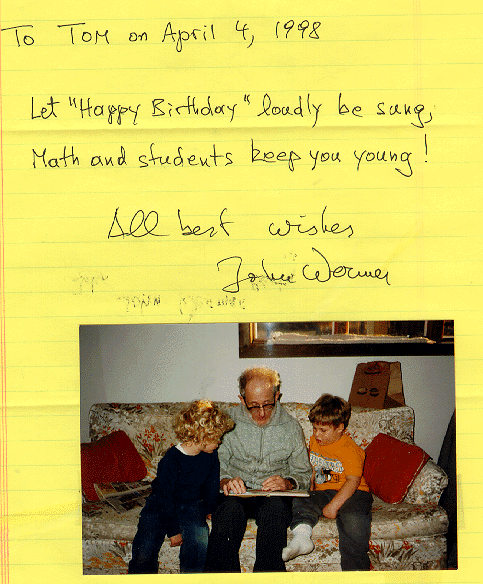 To Tom on April 4, 1998
Let "Happy Birthday" loudly be sung,
Math and students keep you young!
All best wishes
John Wermer